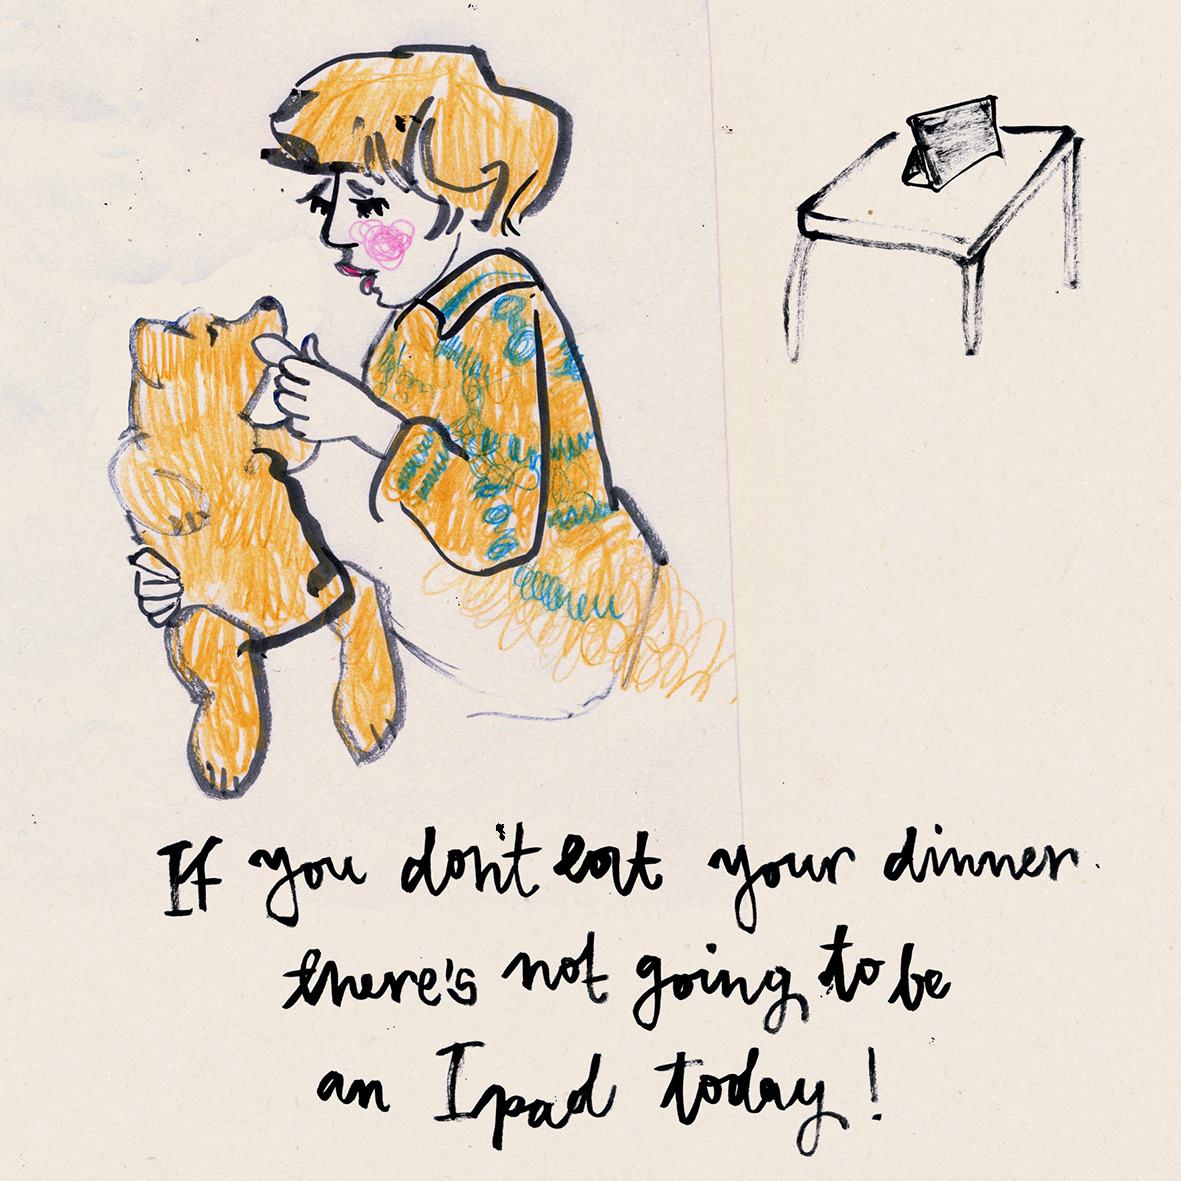 If you don't eat your dinner.
there's not going to be
an Ipad today!